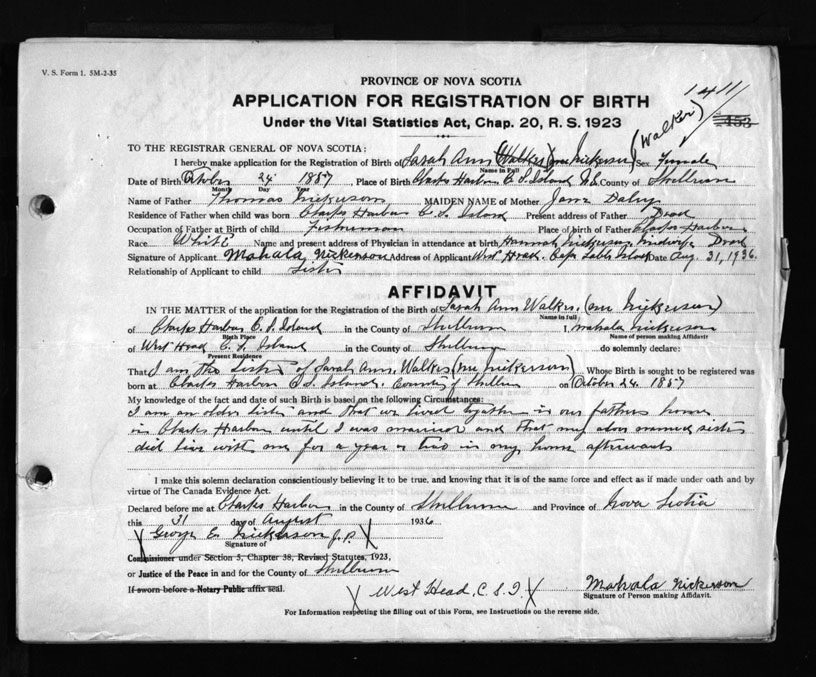 V. S. Form 1. 5M-2-35
1411
453
PROVINCE OF NOVA SCOTIA
APPLICATION FOR REGISTRATION OF BIRTH
Under the Vital Statistics Act, Chap. 20, R. S. 1923
(Walker)
TO THE REGISTRAR GENERAL OF NOVA SCOTIA:
I hereby make application for the Registration of Birth of Sarah Ann (Walker) (nee Nickerson) Sex Female
Name in Full
Date of Birth October 24 1857 Place of Birth Clarks Harbor C. S. Island N.S. County of Shelburne
Month Day Year
Name of Father Thomas Nickerson MAIDEN NAME of Mother Jane Daley
Residence of Father when child was born Clarks Harbor C. S. Island Present address of Father Dead
Occupation of Father at Birth of Child Fisherman Place of birth of Father Clarks Harbor
Race White Name and present address of Physician in attendance at birth Hannah Nickerson Midwife Dead
Signature of Applicant Mahala Nickerson Address of Applicant West Head. Cape Sable Island Date Aug. 31, 1936.
Relationship of Applicant to child Sister
AFFIDAVIT
IN THE MATTER of the application for the Registration of the Birth of Sarah Ann Walker. (nee Nickerson)
Name in full
of Clarks Harbor C. S. Island in the County of Shelburne I, Mahala Nickerson
Birth Place Name of person making Affidavit
of West Head C. S. Island in the County of Shelburne do solemnly declare:
Present Residence
That I am the Sister of Sarah Ann. Walker (nee Nickerson) Whose Birth is sought to be registered was
born at Clarks Harbor C. S. Island. County of Shelburne on October 24. 1857
My knowledge of the fact and date of such Birth is based on the following Circumstances:
I am an older sister and that we lived together in our fathers home
in Clarks Harbor until I was married and that my above named sister
did live with me for a year or two in my home afterwards
I make this solemn declaration conscientiously believing it to be true, and knowing that it is of the same force and effect as if made under oath and by
virtue of The Canada Evidence Act.
Declared before me at Clarks Harbor in the County of Shelburne and Province of Nova Scotia
this 31 day of August 1936
X George E Nickerson J. P. X
Signature of
Commissioner under Section 5, Chapter 38, Revised Statutes, 1923,
or Justice of the Peace in and for the County of Shelburne
If sworn before a Notary Public affix seal.
X West Head, C. S. I. X Mahala Nickerson
Signature of Person making Affidavit.
For Information respecting the filling out of this Form, see Instructions on the reverse side.